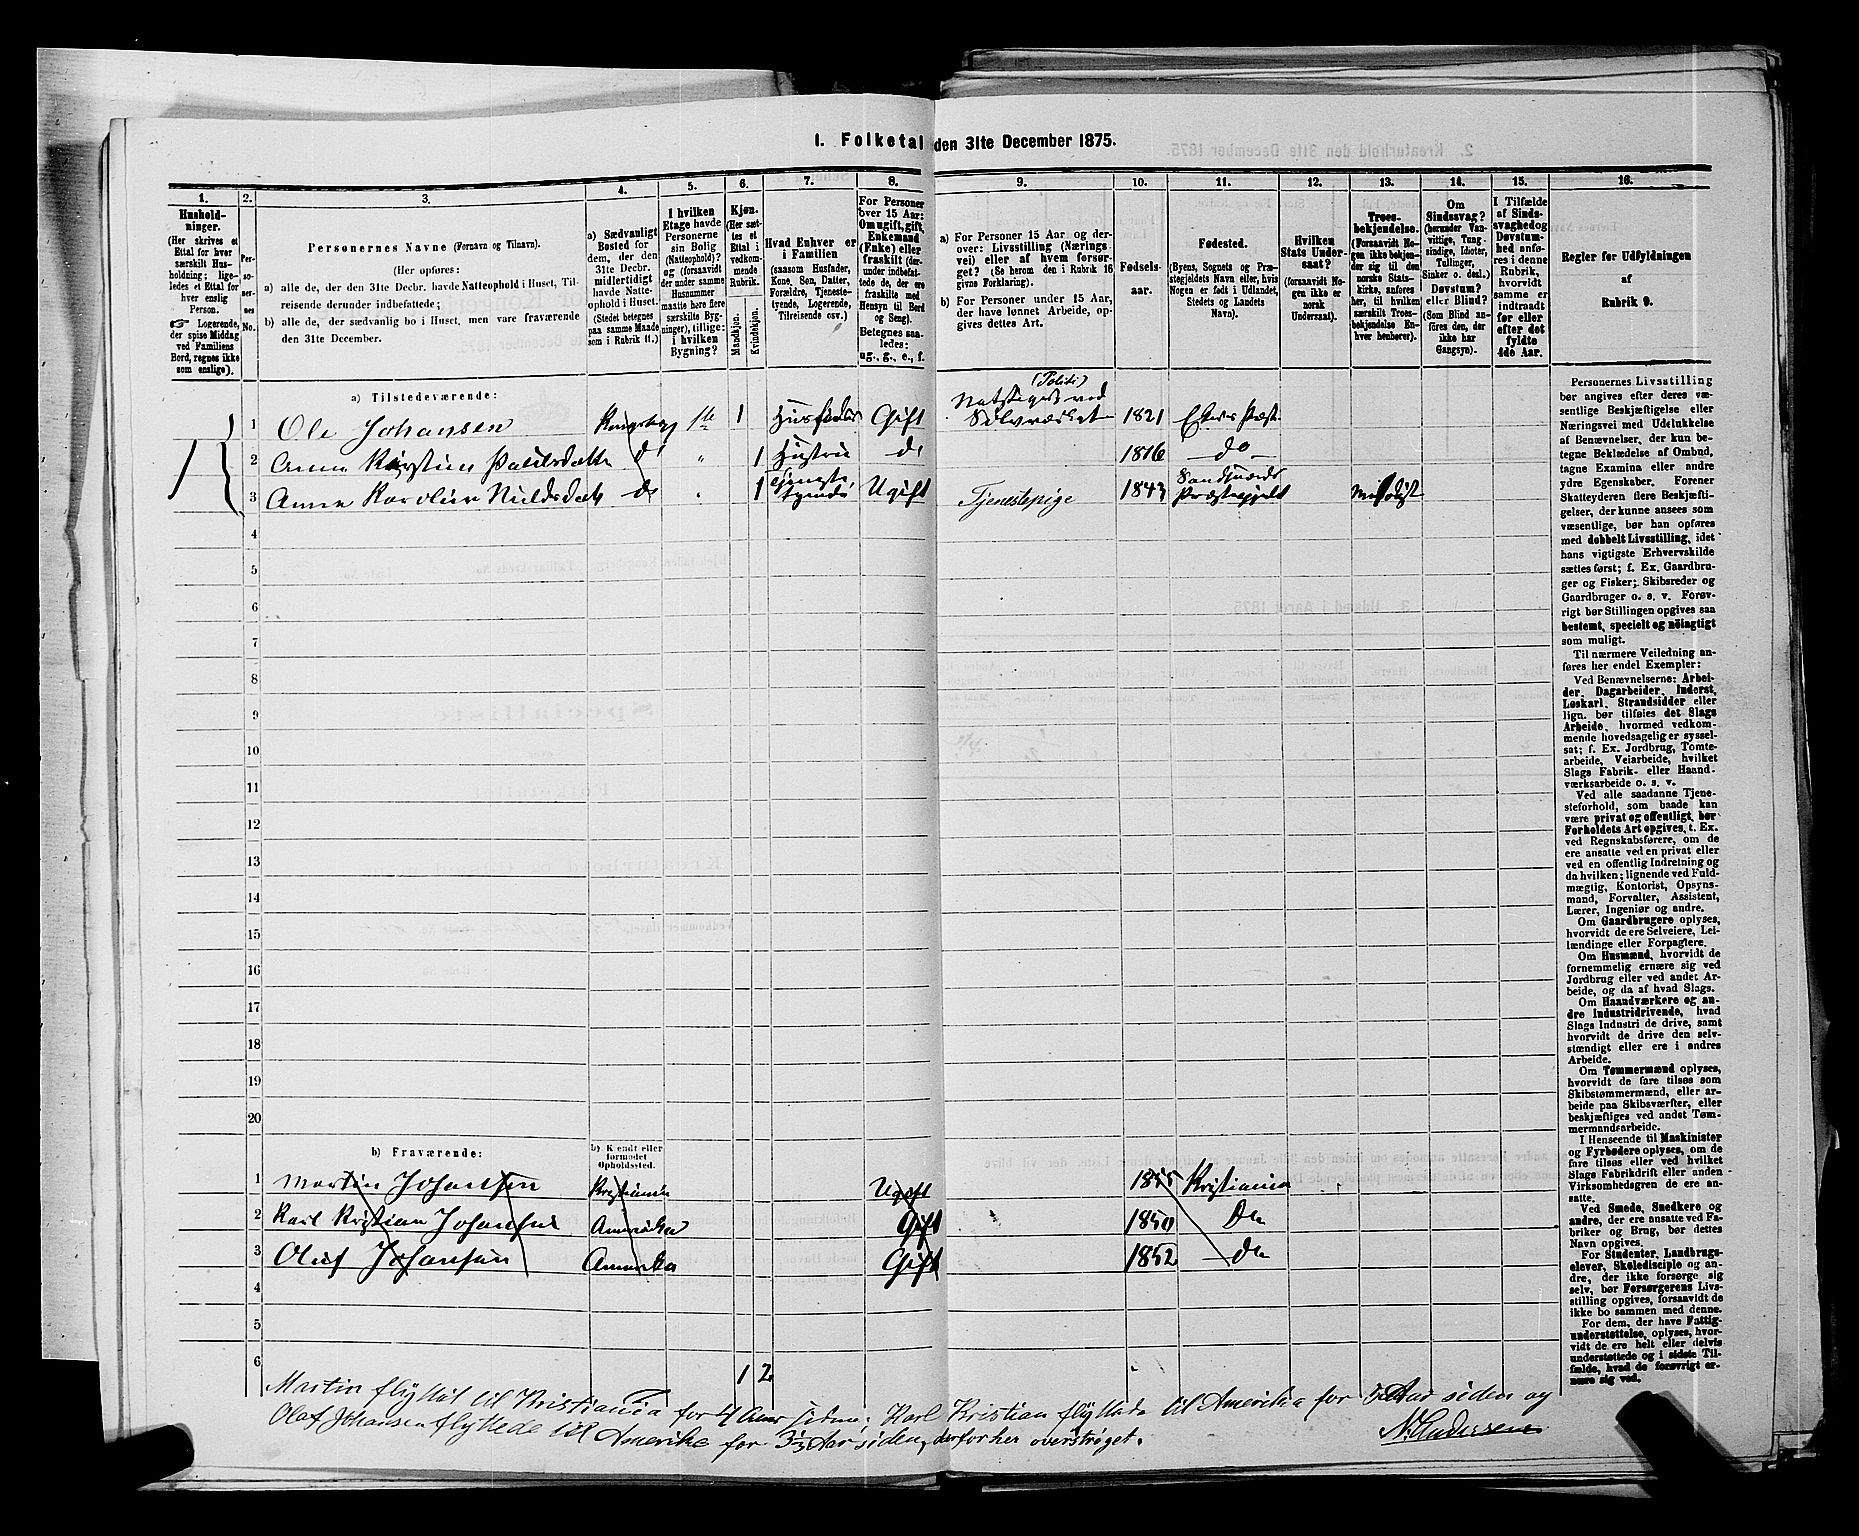 1. Folketal den 31te December 1875.
1. 2. 3. 4. 5. 6. 7. 8. 9. 10. 11. 12. 13. 14. 15. 16.
Husholdninger.
(Her skrives et Ettal for hver særskilt Husholdning; ligeledes et Ettal for hver enslig Person.
☞ Logerende, der spise Middag ved Familiens Bord, regnes ikke som enslige).
Personernes No.
Personernes Navne (Fornavn og Tilnavn).
(Her opføres:
a) alle de, der den 31te Decbr. havde Natteophold i Huset, Tilreisende derunder indbefattede;
b) alle de, der sædvanlig bo i Huset, men vare fraværende den 31te December.
a) Sædvanligt Bosted for dem, der den 31te Decbr. midlertidigt havde Natteophold i Huset. (Stedet betegnes paa samme Maade som i Rubrik 11.)
I hvilken Etage havde Personerne sin Bolig (Natteophold)? og (forsaavidt der under samme Husnummer maatte høre flere særskilte Bygninger), tillige: i hvilken Bygning?
Kjøn. (Her sættes et Ettal i vedkommende Rubrik.
Mandkjøn.
Kvindekjøn.
Hvad Enhver er i Familien
(saasom Husfader, Kone, Søn, Datter, Forældre, Tjenestetyende, Logerende, Tilreisende osv.)
For Personer over 15 Aar: Om ugift, gift, Enkemand (Enke) eller fraskilt (derunder indbefattede de, der ere fraskilte med Hensyn til Bord og Seng).
Betegnes saaledes: ug., g., e., f.
a) For Personer 15 Aar og derover: Livsstilling (Næringsvei) eller af hvem forsørget? (Se herom den i Rubrik 16 givne Forklaring).
b) For Personer under 15 Aar, der have lønnet Arbeide, opgives dettes Art.
Fødselsaar.
Fødested.
(Byens, Sognets og Præstegjeldets Navn eller, hvis Nogen er født i Udlandet, Stedets og Landets Navn).
Hvilken Stats Undersaat?
(forsaavidt Nogen ikke er norsk Undersaat).
Troesbekjendelse.
(Forsaavidt Nogen ikke bekjender sig til den norske Statskirke, anføres her, til hvilken særskilt Troesbekjendelse Enhver henhører).
Om Sindssvag? (herunder Vanvittige, Tungsindige, Idioter, Tullinger, Sinker o. desl.) Døvstum? eller Blind? (Som Blind anføres den, der ikke har Gangsyn).
I Tilfælde af Sindssvaghed og Døvstumhed anføres i denne Rubrik, hvorvidt samme er indtraadt før eller efter det fyldte 4de Aar.
Regler for Udfyldningen af Rubrik 9.
a) Tilstedeværende:
1 Ole Johansen Kongsberg 1ste 1 Husfader Gift (Politi) ved Sølvværket 1821 Eker Præst
2 Anna Kirstine Paulsdatter do „ 1 Hustru do 1816 do
3 Anne Karoline Nieldsdatter do „ 1 Tjenestetyende Ugift Tjenestepige 1843 Præstegjeld
4
5
6
7
8
9
10
11
12
13
14
15
16
17
18
19
20
b) Fraværende:
b) Kjendt eller formodet Opholdssted.
1 Martin Johansen Kristiania Ugift Kristiania
2 Karl Kristian Johansen Amerika Gift 1850 Do
3 Oluf Johansen Amerika Gift 1852 do
4
5
6 1 2
Martin flyttet til Kristiania for 4 Aar siden, Karl Kristian flyttede til Amerika for 5 Aar siden og
Olaf Johansen flyttede til Amerika for 3½ Aar siden, derfor her overstrøget.
Personernes Livsstilling bør angives efter deres væsentlige Beskjæftigelse eller Næringsvei med Udelukkelse af Benævnelser, der kun betegne Beklædelse af Ombud, tagne Examina eller andre ydre Egenskaber. Forener Skatteyderen flere Beskjæftigelser, der kunne ansees som væsentlige, bør han opføres med dobbelt Livsstilling, idet hans vigtigste Erhvervskilde sættes først; f. Ex. Gaardbruger og Fisker; Skibsreder og Gaardbruger o. s. v. Forøvrigt bør Stillingen opgives saa bestemt, specielt og nøiagtigt som muligt.
Til nærmere Veiledning anføres her endel Exempler:
Ved Benævnelserne: Arbeider, Dagarbeider, Inderst, Løskarl, Strandsidder eller lign. bør tilføies det Slags Arbeide, hvormed vedkommende hovedsagelig er sysselsat; f. Ex. Jordbrug, Tomtearbeide, Veiarbeide, hvilket Slags Fabrik- eller Haandværksarbeide o. s. v.
Ved alle saadanne Tjenesteforhold, som baade kan være privat og offentligt, bør Forholdets Art opgives, t. Ex. ved Regnskabsførere, om de ere ansatte ved en privat eller ved en offentlig Indretning og da hvilken; lignende ved Fuldmægtig, Kontorist, Opsynsmand, Forvalter, Assistent, Lærer, Ingeniør og andre.
Om Gaardbrugere oplyses, hvorvidt de ere Selveiere, Leilændinge eller Forpagtere.
Om Husmænd, hvorvidt de fornemmelig ernære sig ved Jordbrug eller ved andet Arbeide, og da af hvad Slags.
Om Haandværkere og andre Industridrivende, hvad Slags Industri de drive, samt hvorvidt de drive den selvstændigt eller ere i andres Arbeide.
Om Tømmermænd oplyses, hvorvidt de fare tilsøs som Skibstømmermænd, eller arbeide paa Skibsværfter, eller beskjæftiges ved andet Tømmermandsarbeide.
I Henseende til Maskinister og Fyrbødere oplyses, om de fare tilsøs eller ved hvilket Slags Fabrikdrift eller anden Virksomhedsgren de ere ansatte.
Ved Smede, Snedkere og andre, der ere ansatte ved Fabriker og Brug, bør dettes Navn opgives.
For Studenter, Landbrugselever, Skoledisciple og andre, der ikke forsørge sig selv, bør Forsørgerens Livsstilling opgives, forsaavidt de ikke bo sammen med denne.
For dem, der have Fattigunderstøttelse, oplyses, hvorvidt de ere helt eller delvis understøttede og i sidste Tilfælde, hvad de forøvrigt ernære sig ved.